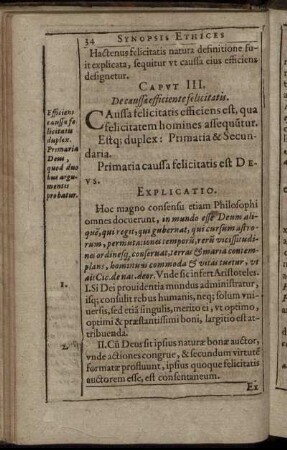 34 SYNOPSIS ETHICES
Hactenus felicitatis natura definitione fu-
it explicata, sequitur vt caussa eius efficiens
designetur.
CAPVT III.
De caussa efficiente felicitatis.
Efficiens
caussa fe
licitatis
duplex.
Primaria
Deus,
quod duo
bus argu-
mentis
probatur.
CAussa felicitatis efficiens est, qua
felicitatem homines assequũtur.
Estq; duplex: Primaria & Secun-
daria.
Primaria caussa felicitatis est DE-
VS.
EXPLICATIO.
Hoc magno consensu etiam Philosophi
omnes docuerunt, in mundo esse Deum ali-
quẽ, qui regit, qui gubernat, qui cursum astro-
rum, permutationes temporũ, rerũ vicissitudi-
nes ordinesq́; conseruat, terras & maria contem-
plans, hominum commoda & vitas tuetur, vt
ait Cic. de nat. deor. Vnde sic infert Aristoteles.
1.
I. Si Dei prouidentia mundus administratur,
isq; consulit rebus humanis, neq; solum vni-
uersis, sed etiã singulis, merito ei, vt optimo,
optimi & præstantissimi boni, largitio est at-
tribuenda.
2.
II. Cũ Deus sit ipsius naturæ bonæ auctor,
vnde actiones congruæ, & secundum virtutẽ
formatæ profluunt, ipsius quoque felicitatis
auctorem esse, est consentaneum.
Ex